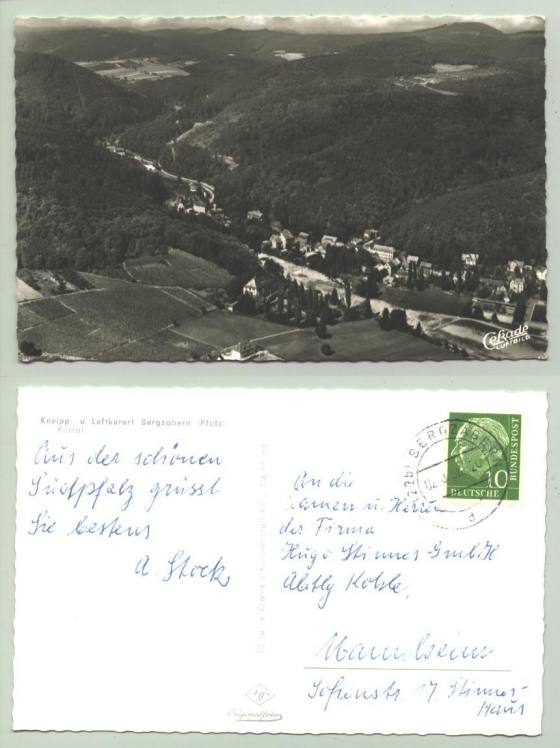 Cekade
LUFTBILD
Kneipp- u. Luftkurort Bergzabern (Pfalz)
Kurtal
Aus der schönen
Südpfalz grüsst
Sie bestens
A. Stock
BERGZABERN
(22b)
d
DEUTSCHE
BUNDESPOST
10
An die
Damen u. Herren
der Firma
Hugo Stinnes GmbH
Abtlg Kohle,
Mannheim
17 Stinnes-
Haus
Originalfoto